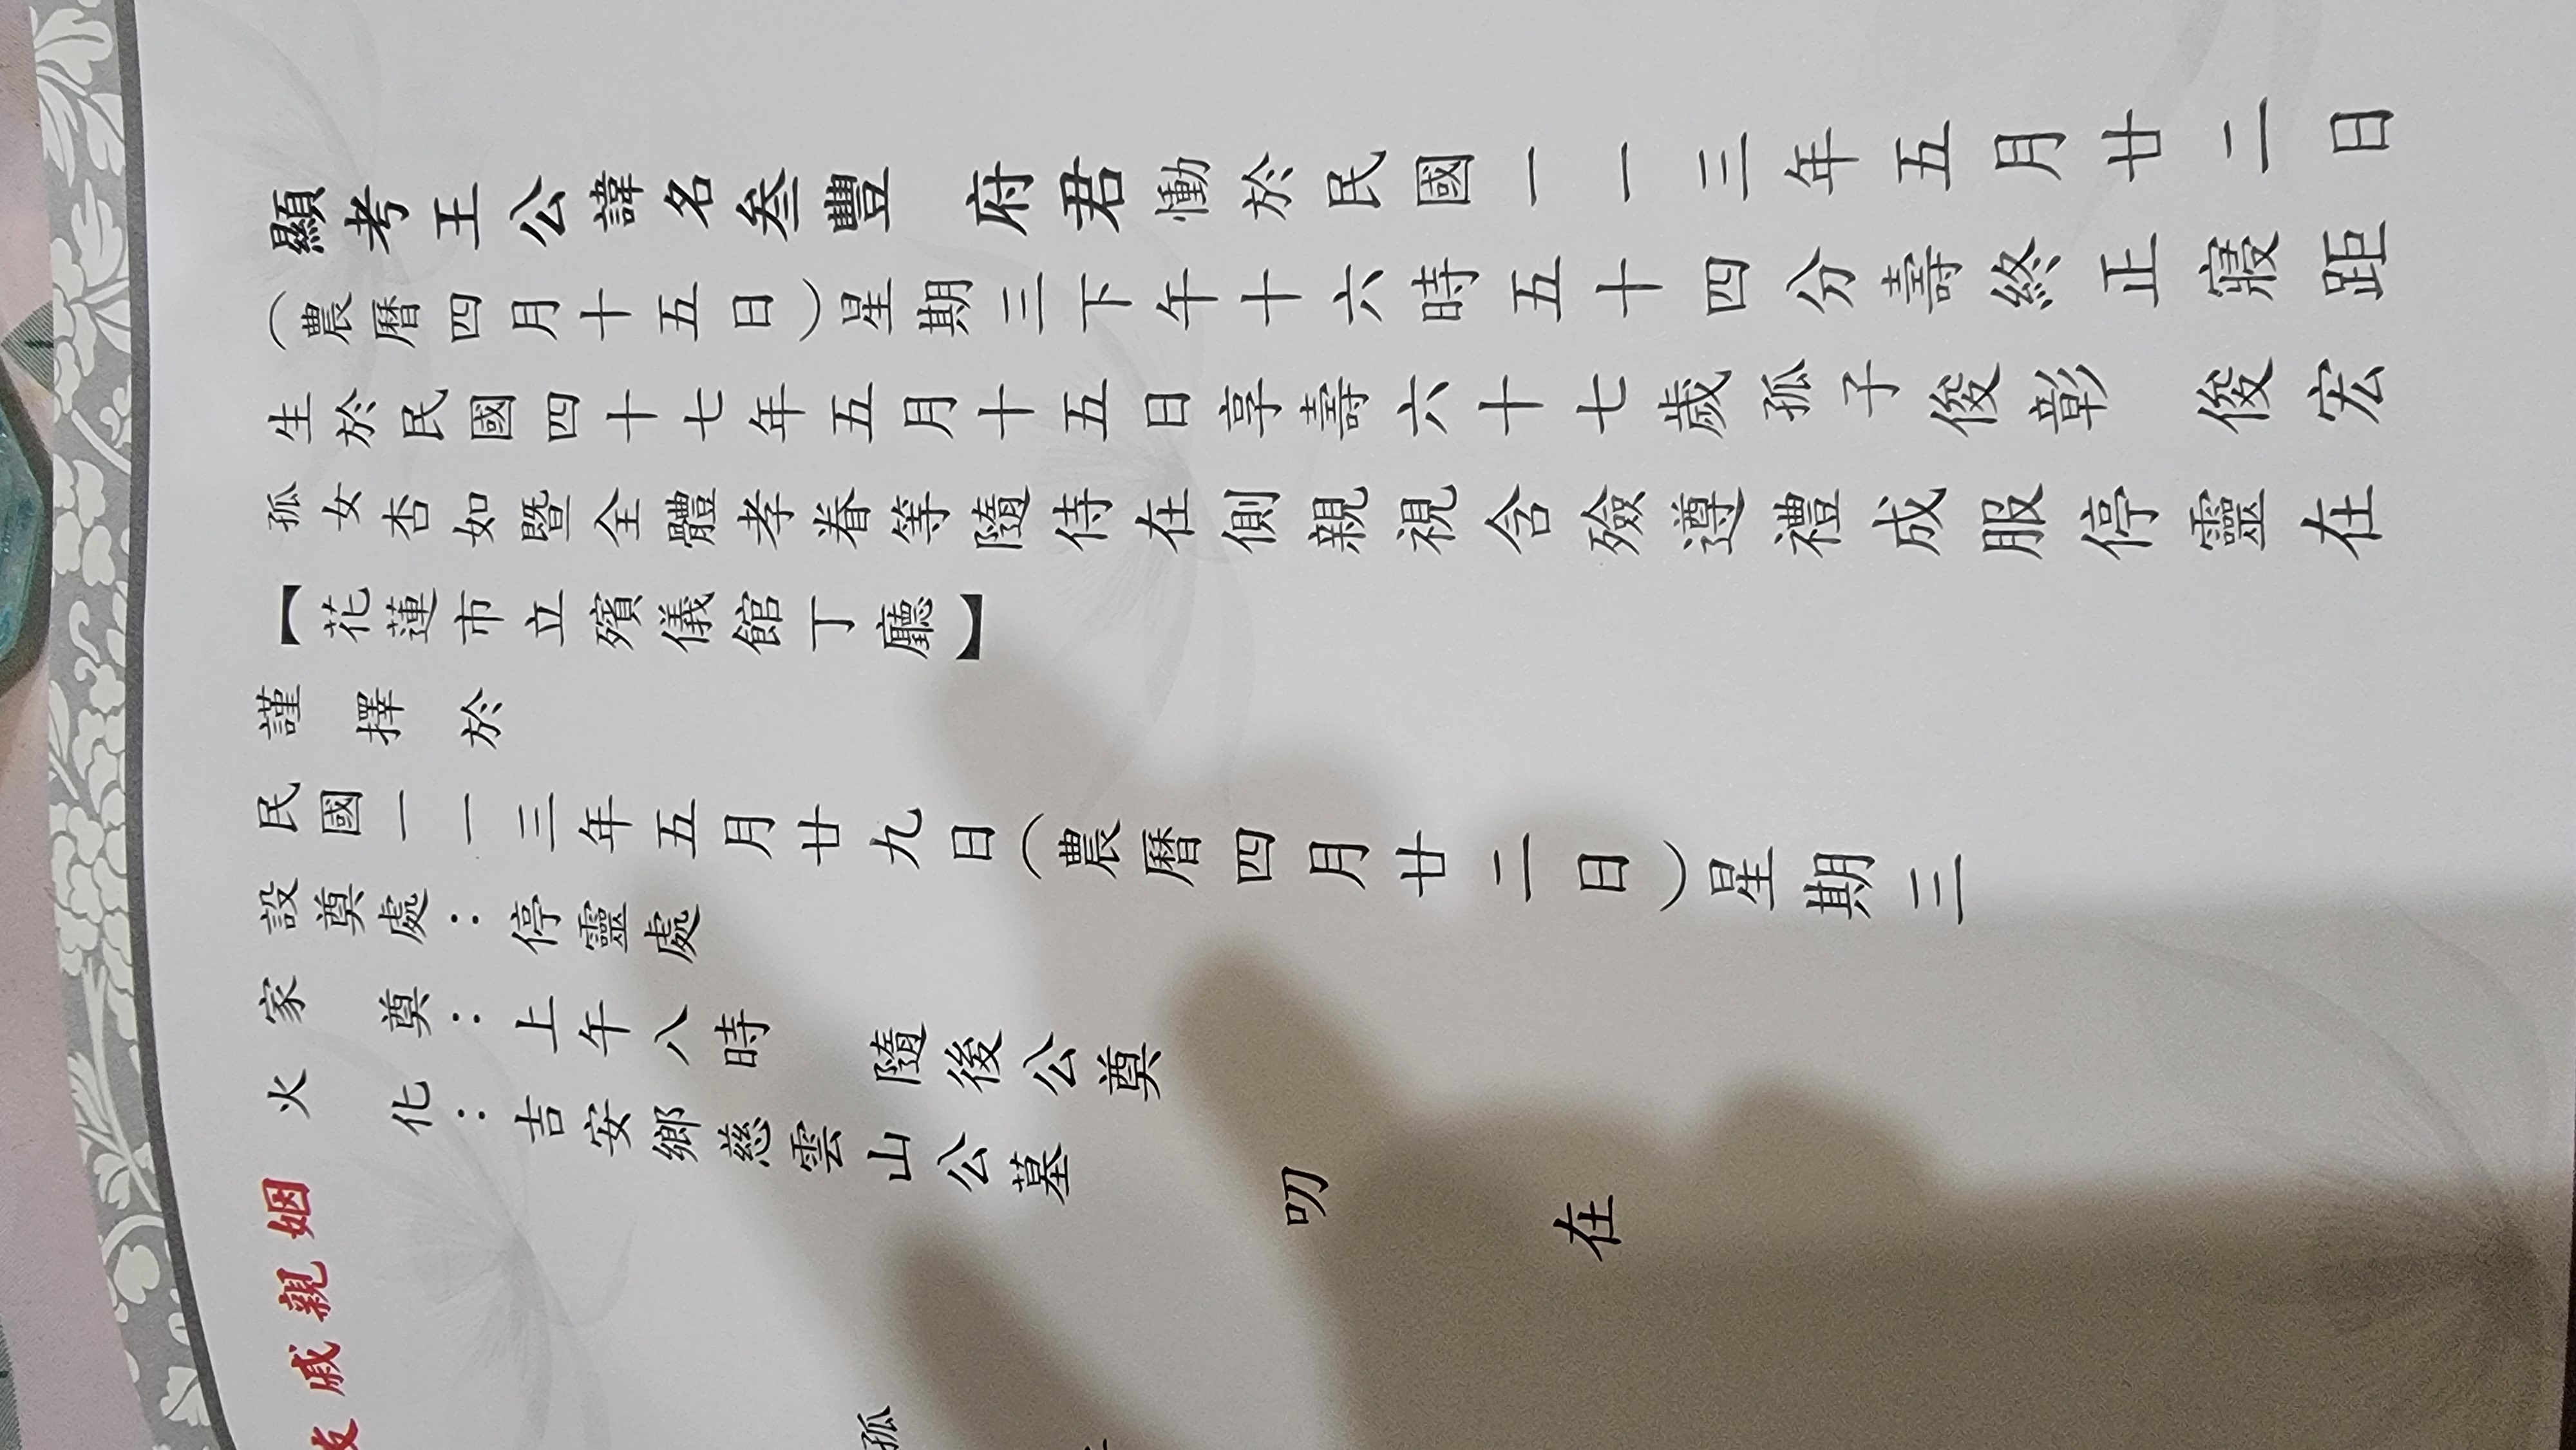 顯考王公諱名叁豐 府君慟於民國一一三年五月廿二日
(農曆四月十五日)星期三下午十六時五十四分壽終正寢距
生於民國四十七年五月十五日享壽六十七歲孤子俊彰 俊宏
孤女杏如暨全體孝眷等隨侍在側親視含殮遵禮成服停靈在
【花蓮市立殯儀館丁廳】
謹擇於
民國一一三年五月廿九日(農曆四月廿二日)星期三
設奠處:停靈處
家奠:上午八時 隨後公奠
火化:吉安鄉慈雲山公墓
叨
在
姻親戚友
孤